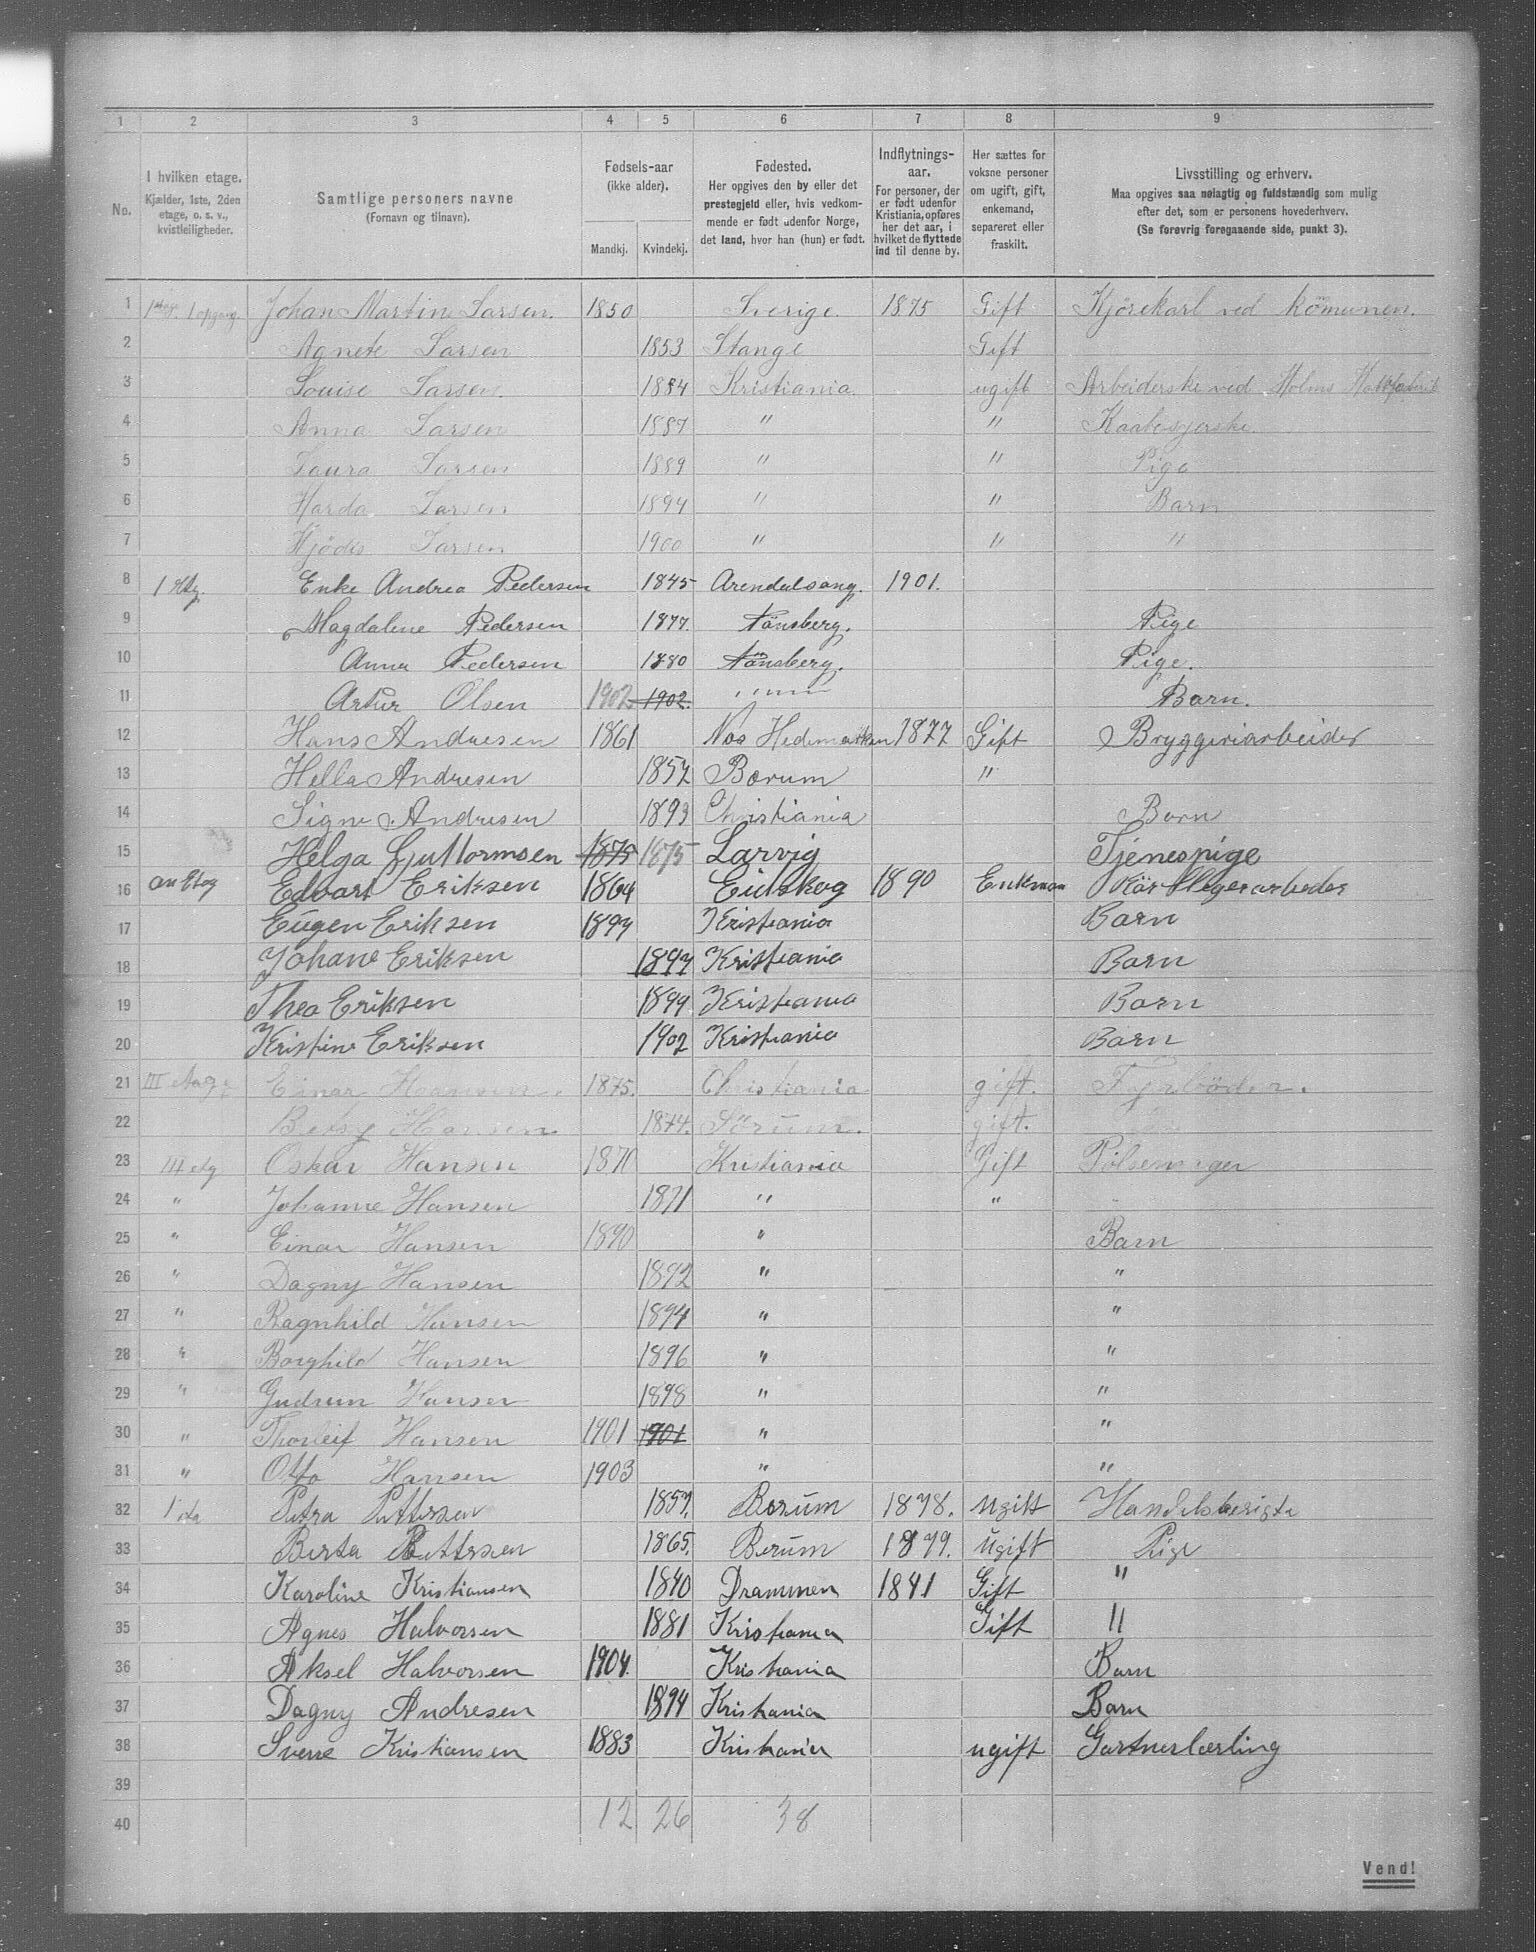 1 2 3 4 5 6 7 8 9
No.
I hvilken etage.
Kjælder, 1ste, 2den
etage, o. s. v.,
kvistleiligheder.
Samtlige personers navne
(Fornavn og tilnavn).
Fødsels-aar
(ikke alder).
Mandkj. Kvindekj.
Fødested.
Her opgives den by eller det
prestegjeld eller, hvis vedkom-
mende er født udenfor Norge,
det land, hvor han (hun) er født.
Indflytnings-
aar.
For personer, der
er født udenfor
Kristiania, opføres
her det aar, i
hvilket de flyttede
ind til denne by.
Her sættes for
voksne personer
om ugift, gift,
enkemand,
separeret eller
fraskilt.
Livsstilling og erhverv.
Maa opgives saa nøiagtig og fuldstændig som mulig
efter det, som er personens hovederhverv.
(Se forøvrig foregaaende side, punkt 3).
1 1 etg. 1 opgang. Johan Martin Larsen. 1850 Sverige. 1875 Gift Kjörekarl ved kömunen.
2 Agnete Larsen 1853 Stange Gift
3 Louise Larsen. 1884 Kristiania. ugift Arbeiderske ved Holms Hattefabrik
4 Anna Larsen 1887 " " Kaabesyerske
5 Laura Larsen 1889 " " Pige
6 Harda Larsen 1894 " " Barn
7 Hjødis Larsen 1900 " " "
8 1 Etg. Enke Andrea Pedersen 1845 Arendalsong. 1901.
9 Magdalene Pedersen 1877. Tönsberg. Pige
10 Anna Pedersen 1880 Tönsberg. Pige.
11 Artur Olsen 1902 1902. " " Barn.
12 Hans Andresen 1861 Nos Hedemarken 1877 Gift Bryggeriarbeider
13 Hella Andresen 1857 Bærum "
14 Signe Andresen 1893 Christiania Barn
15 Helga Guttormsen 1875 1875 Larvig Tjenespige
16 an Etag Edvart Eriksen 1864 Eidskog 1890 Enkman
17 Eugen Eriksen 1894 Kristiania Barn
18 Johane Eriksen 1897 Kristiania Barn
19 Thea Eriksen 1899 Kristiania Barn
20 Kristine Eriksen 1902 Kristiania Barn
21 III etage Einar Hansen. 1875. Christiania gift. Fyrböder.
22 Betsy Hansen 1874. Sörum. gift.
23 III etg Oskar Hansen 1870 Kristiania Gift Pölsemager
24 " Johanne Hansen 1871 " "
25 " Einar Hansen 1890 " Barn
26 " Dagny Hansen 1892 " "
27 " Ragnhild Hansen 1894 " "
28 " Borghild Hansen 1896 " "
29 " Gudrun Hansen 1898 " "
30 " Thorleif Hansen 1901 1901 " "
31 " Otto Hansen 1903 " "
32 Petra Pettersen 1857. Berum 1878. ugift
33 Berta Pettersen 1865. Berum 1879. ugift Pige
34 Karoline Kristiansen 1840 Drammen 1841 Gift "
35 Agnes Halvorsen 1881 Kristiania Gift "
36 Aksel Halvorsen 1904. Kristiania Barn
37 Dagny Andresen 1894 Kristiania Barn
38 Sverre Kristiansen 1883 Kristiania ugift Gartnerlærling
39
40 12 26 38
Vend!